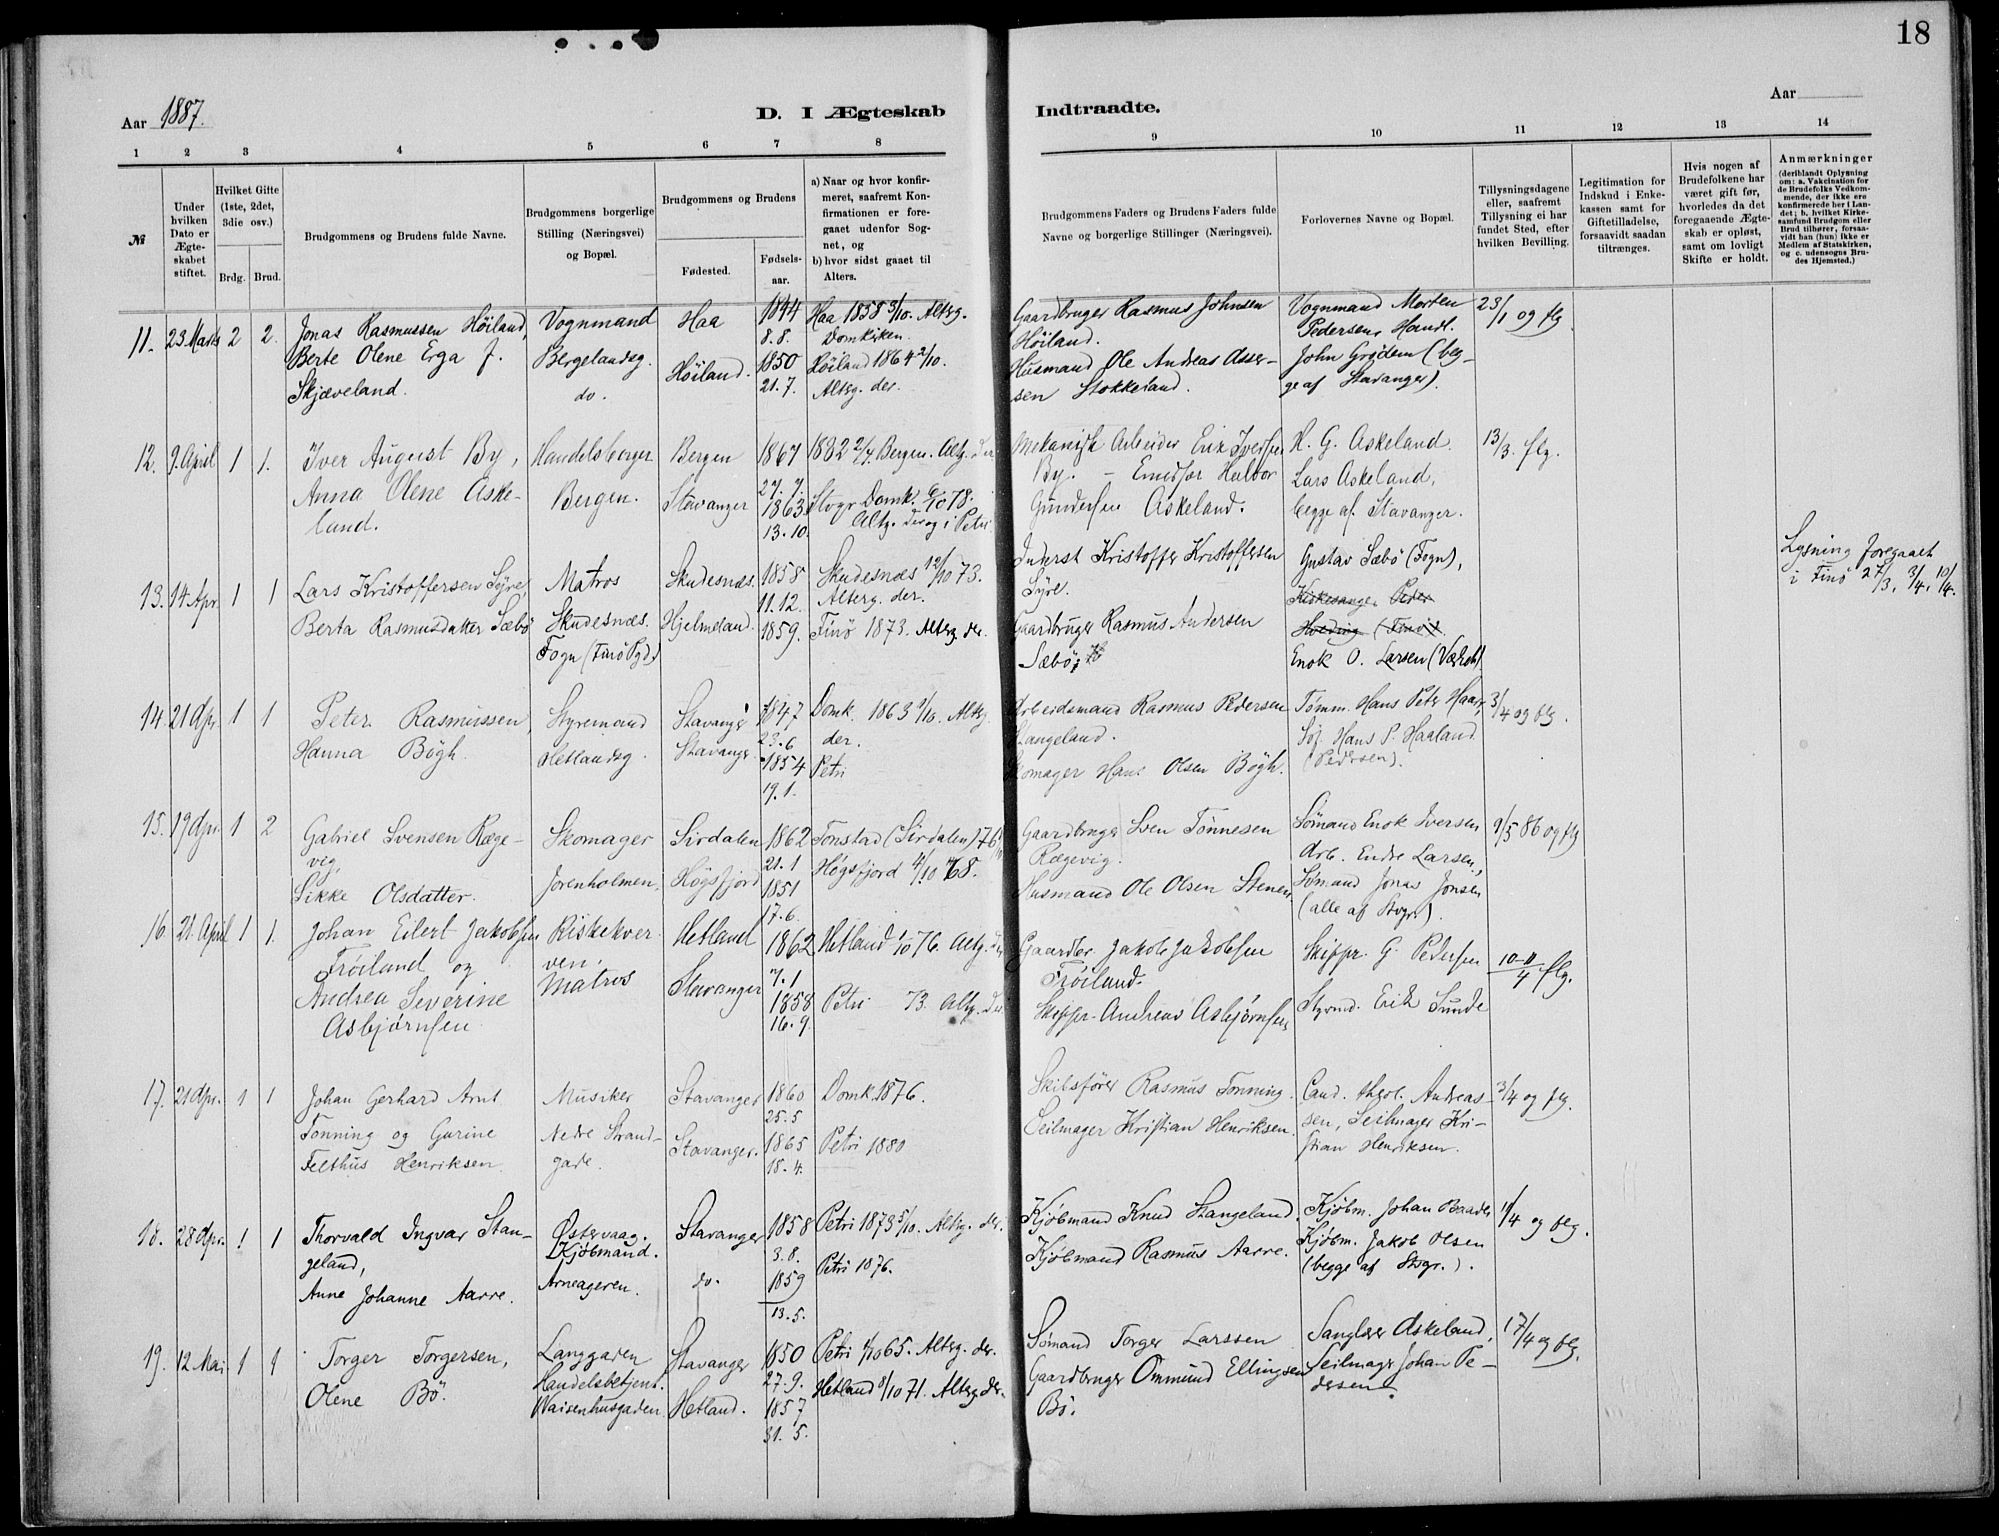 18
Aar 1887.
D. I Ægteskab
Indtraadte.
Aar
1 2 3 4 5 6 7 8 9 10 11 12 13 14
№
Under hvilken Dato er Ægteskabet stiftet.
Hvilket Gifte (1ste, 2det, 3die osv.)
Brdg. Brud.
Brudgommens og Brudens fulde Navne.
Brudgommens borgerlige Stilling (Næringsvei) og Bopæl.
Brudgommens og Brudens
Fødested.
Fødsels-aar.
a) Naar og hvor konfirmeret, saafremt Konfirmationen er foregaaet udenfor Sognet, og
b) hvor sidst gaaet til Alters.
Brudgommens Faders og Brudens Faders fulde Navne og borgerlige Stillinger (Næringsvei).
Forlovernes Navne og Bopæl.
Tillysningsdagene eller, saafremt Tillysning ei har fundet Sted, efter hvilken Bevilling.
Legitimation for Indskud i Enkekassen samt for Giftetilladelse, forsaavidt saadan tiltrænges.
Hvis nogen af Brudefolkene har været gift før, hvorledes da det foregaaende Ægteskab er opløst, samt om lovligt Skifte er holdt.
Anmærkninger
(deriblandt Oplysning om: a. Vakcination for de Brudefolks Vedkommende, der ikke ere konfirmerede her i Landet; b. hvilket Kirkesamfund Brudgom eller Brud tilhører, forsaavidt han (hun) ikke er Medlem af Statskirken, og c. udensogns Brudes Hjemsted.)
11. 23 Marts 2 2.
Jonas Rasmussen Höiland,
Berte Olene Erga f.
Skjæveland.
Vognmand
Bergelandsg.
do.
Haa
Höiland.
1844
8.8.
1850
21.7.
Haa 1858 3/10. Altsg.
Domkirken.
Höiland 1864 2/10.
Altsg. der.
Gaardbruger Rasmus Johnsen
Höiland.
Husmand Ole Andreas Asser-
sen Stokkeland.
Vognmand Morten
Pedersen, Handl.
John Grødem (beg-
ge af Stavanger).
23/1 og flg.
12. 9. April 1 1.
Iver August By,
Anna Olene Aske-
land.
Handelsborger
Bergen.
Bergen
Stavanger
1867
27.7.
1863
13.10.
1882 2/7. Bergen. Altg. der
Stvgr Domk. 6/10 78.
Altg. der og i Petri
Mekanisk Arbeider Erik Iversen
By. –
Gundersen Askeland.
H. G. Askeland.
Lars Askeland,
begge af Stavanger.
13/3. flg.
13. 14 Apr. 1 1
Lars Kristoffersen Syre,
Berta Rasmusdatter Sæbö
Matros
Skudesnæs.
Fogn (Finö Pgd.)
Skudesnæs.
Hjelmeland.
1858
11.12.
1859.
Skudesnæs 12/10 73.
Alterg. der.
Finö 1873. Altsg. der.
Inderst Kristoffer Kristoffersen
Syre.
Gaardbruger Rasmus Andersen
Sæbö,
Gustav Sæbö (Fogn),
Kirkesanger Peder
(Finö).
Enok O. Larsen
Lysning foregaaet
i Finö 27/3, 3/4, 10/4.
14. 21 Apr. 1 1
Peter Rasmussen,
Hanna Bögh.
Styrmand
Hetlandsg.
Stavanger
Stavanger
1847
23.6
1854
19.1.
Domk. 1863 /10. Altsg.
der.
Petri
Arbeidsmand Rasmus Pedersen
Stangeland.
Skomager Hans Olsen Bögh.
Tømm. Hans Peter
Søf. Hans P. Haaland
(Pedersen).
3/4 og flg.
15. 19 Apr. 1 2
Gabriel Svensen Ræge-
vig,
Sikke Olsdatter.
Skomager
Jorenholmen.
Sirdalen
Högsfjord
1862
21.1
1851
17.6.
Tonstad (Sirdalen) 76
Högsfjord 4/10 68.
Gaardbruger Sven Tönnesen
Rægevig.
Husmand Ole Olsen Stenen
Sömand Enok Iversen
Arb. Endre Larsen,
Sömand Jonas Jonsen
(alle af Stvgr.).
9/5 86 og flg
16. 21. April 1 1.
Johan Eilert Jakobsen
Tröiland og
Andrea Severine
Asbjørnsen.
Riskekver
ven.
Matros
Hetland
Stavanger
1862
7.1
1858
16.9.
Hetland /10 76. Altg. der
Petri 73. Altg. der
Gaardbr. Jakob Jakobsen
Tröiland.
Skippr. Andreas Asbjørnsen
Skippr. G. Pedersen
Styrmd. Erik Sunde
10-11/4 flg.
17. 21 Apr. 1 1
Johan Gerhard Arnt
Tonning og Gurine
Felthus Henriksen.
Musiker
Nedre Strand-
gade.
Stavanger
Stavanger.
1860
25.5
1865
18.4.
Domk. 1876.
Petri 1880
Skibsfører Rasmus Tonning.
Seilmager Kristian Henriksen.
Cand. theol. Andreas-
sen, Seilmager Kri-
stian Henriksen.
3/4 og flg.
18. 28 Apr. 1 1
Thorvald Ingvar Stan-
geland,
Anne Johanne Aarre.
Østervaag.
Kjöbmand.
Arneageren.
Stavanger
do.
1858
3.8.
1859
13.5.
Petri 1873 5/10. Altsg. der.
Petri 1876.
Kjöbmand Knud Stangeland.
Kjöbmand Rasmus Aarre.
Kjöbm. Johan Baades
Kjöbm. Jakob Olsen
(begge af Stvgr.).
11/4 og flg.
19. 12 Mai. 1 1
Torger Torgersen,
Olene Bö.
Langgaden
Handelsbetjent.
Waisenhusgaden
Stavanger
Hetland.
1850
27.9.
1857
31.5.
Petri 1/10 65. Altsg. der.
Hetland 8/10 71. Altsg. der.
Sömand Torger Larssen
Gaardbruger Ommund Ellingsen
Bö.
Sanglærer Askeland,
Seilmager Johan Pe-
dersen.
17/4 og flg.